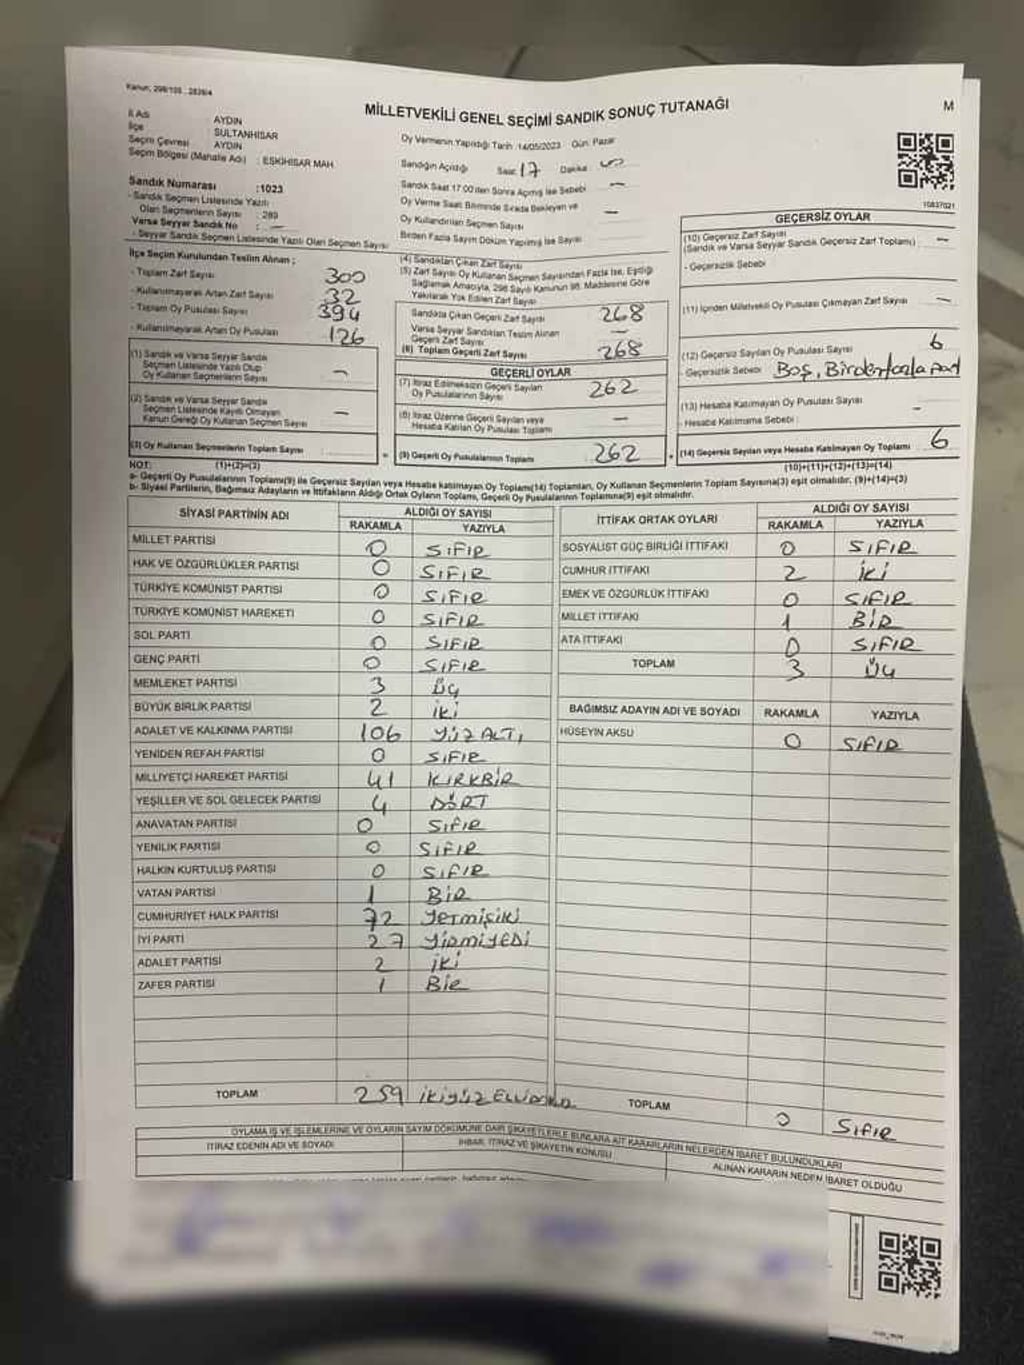 Kanun; 298/105 , 2839/4
MİLLETVEKİLİ GENEL SEÇİMİ SANDIK SONUÇ TUTANAĞI
M
İl Adı AYDIN
İlçe SULTANHİSAR
Seçim Çevresi AYDIN
Seçim Bölgesi (Mahalle Adı) : ESKİHİSAR MAH.
Sandık Numarası :1023
- Sandık Seçmen Listesinde Yazılı
Olan Seçmenlerin Sayısı : 289
Varsa Seyyar Sandık No : —
- Seyyar Sandık Seçmen Listesinde Yazılı Olan Seçmen Sayısı
Oy Vermenin Yapıldığı Tarih :14/05/2023 Gün: Pazar
Sandığın Açıldığı Saat 17 Dakika
Sandık Saat 17:00'den Sonra Açılmış İse Sebebi —
Oy Verme Saat Bitiminde Sırada Bekleyen ve
Oy Kullandırılan Seçmen Sayısı —
Birden Fazla Sayım Döküm Yapılmış İse Sayısı
10837021
İlçe Seçim Kurulundan Teslim Alınan ;
- Toplam Zarf Sayısı 300
- Kullanılmayarak Artan Zarf Sayısı 32
- Toplam Oy Pusulası Sayısı 394
- Kullanılmayarak Artan Oy Pusulası 126
(1) Sandık ve Varsa Seyyar Sandık
Seçmen Listesinde Yazılı Olup
Oy Kullanan Seçmenlerin Sayısı —
(2) Sandık ve Varsa Seyyar Sandık
Seçmen Listesinde Kayıtlı Olmayan
Kanun Gereği Oy Kullanan Seçmen Sayısı —
(3) Oy Kullanan Seçmenlerin Toplam Sayısı
(4) Sandıktan Çıkan Zarf Sayısı
(5) Zarf Sayısı Oy Kullanan Seçmen Sayısından Fazla İse, Eşitliği
Sağlamak Amacıyla, 298 Sayılı Kanunun 98. Maddesine Göre
Yakılarak Yok Edilen Zarf Sayısı
Sandıkta Çıkan Geçerli Zarf Sayısı 268
Varsa Seyyar Sandıktan Teslim Alınan
Geçerli Zarf Sayısı —
(6) Toplam Geçerli Zarf Sayısı 268
GEÇERLİ OYLAR
(7) İtiraz Edilmeksizin Geçerli Sayılan
Oy Pusulalarının Sayısı 262
(8) İtiraz Üzerine Geçerli Sayılan veya
Hesaba Katılan Oy Pusulası Toplamı —
= (9) Geçerli Oy Pusulalarının Toplamı 262
GEÇERSİZ OYLAR
(10) Geçersiz Zarf Sayısı
(Sandık ve Varsa Seyyar Sandık Geçersiz Zarf Toplamı) —
- Geçersizlik Sebebi
(11) İçinden Milletvekili Oy Pusulası Çıkmayan Zarf Sayısı —
(12) Geçersiz Sayılan Oy Pusulası Sayısı 6
- Geçersizlik Sebebi Boş, Birden fazla
(13) Hesaba Katılmayan Oy Pusulası Sayısı —
- Hesaba Katılmama Sebebi :
+ (14) Geçersiz Sayılan veya Hesaba Katılmayan Oy Toplamı 6
NOT: (1)+(2)=(3)
(10)+(11)+(12)+(13)=(14)
a- Geçerli Oy Pusulalarının Toplamı(9) ile Geçersiz Sayılan veya Hesaba katılmayan Oy Toplamı(14) Toplamları, Oy Kullanan Seçmenlerin Toplam Sayısına(3) eşit olmalıdır. (9)+(14)=(3)
b- Siyasi Partilerin, Bağımsız Adayların ve İttifakların Aldığı Ortak Oyların Toplamı, Geçerli Oy Pusulalarının Toplamına(9) eşit olmalıdır.
SİYASİ PARTİNİN ADI ALDIĞI OY SAYISI
RAKAMLA YAZIYLA
MİLLET PARTİSİ 0 SIFIR
HAK VE ÖZGÜRLÜKLER PARTİSİ 0 SIFIR
TÜRKİYE KOMÜNİST PARTİSİ 0 SIFIR
TÜRKİYE KOMÜNİST HAREKETİ 0 SIFIR
SOL PARTİ 0 SIFIR
GENÇ PARTİ 0 SIFIR
MEMLEKET PARTİSİ 3 ÜÇ
BÜYÜK BİRLİK PARTİSİ 2 İKİ
ADALET VE KALKINMA PARTİSİ 106 YÜZ ALTI
YENİDEN REFAH PARTİSİ 0 SIFIR
MİLLİYETÇİ HAREKET PARTİSİ 41 KIRKBİR
YEŞİLLER VE SOL GELECEK PARTİSİ 4 DÖRT
ANAVATAN PARTİSİ 0 SIFIR
YENİLİK PARTİSİ 0 SIFIR
HALKIN KURTULUŞ PARTİSİ 0 SIFIR
VATAN PARTİSİ 1 BİR
CUMHURİYET HALK PARTİSİ 72 Yetmişiki
İYİ PARTİ 27 YİRMİYEDİ
ADALET PARTİSİ 2 İKİ
ZAFER PARTİSİ 1 BİR
TOPLAM 259
İTTİFAK ORTAK OYLARI ALDIĞI OY SAYISI
RAKAMLA YAZIYLA
SOSYALİST GÜÇ BİRLİĞİ İTTİFAKI 0 SIFIR
CUMHUR İTTİFAKI 2 İKİ
EMEK VE ÖZGÜRLÜK İTTİFAKI 0 SIFIR
MİLLET İTTİFAKI 1 BİR
ATA İTTİFAKI 0 SIFIR
TOPLAM 3 ÜÇ
BAĞIMSIZ ADAYIN ADI VE SOYADI RAKAMLA YAZIYLA
HÜSEYİN AKSU 0 SIFIR
TOPLAM 0 SIFIR
OYLAMA İŞ VE İŞLEMLERİNE VE OYLARIN SAYIM DÖKÜMÜNE DAİR ŞİKAYETLERLE BUNLARA AİT KARARLARIN NELERDEN İBARET BULUNDUKLARI
İTİRAZ EDENİN ADI VE SOYADI İHBAR, İTİRAZ VE ŞİKAYETİN KONUSU ALINAN KARARIN NEDEN İBARET OLDUĞU